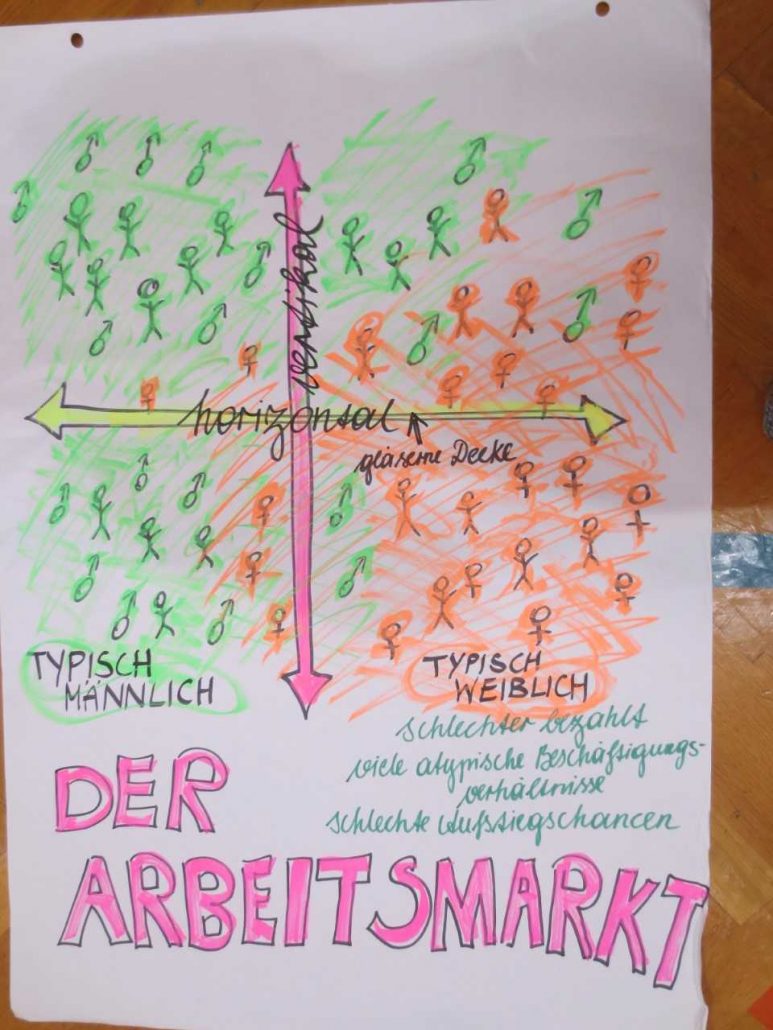 vertikal
horizontal
gläserne Decke
TYPISCH
MÄNNLICH
TYPISCH
WEIBLICH
schlechter bezahlt
viele atypische Beschäftigungs-
verhältnisse
schlechte Aufstiegschancen
DER
ARBEITSMARKT